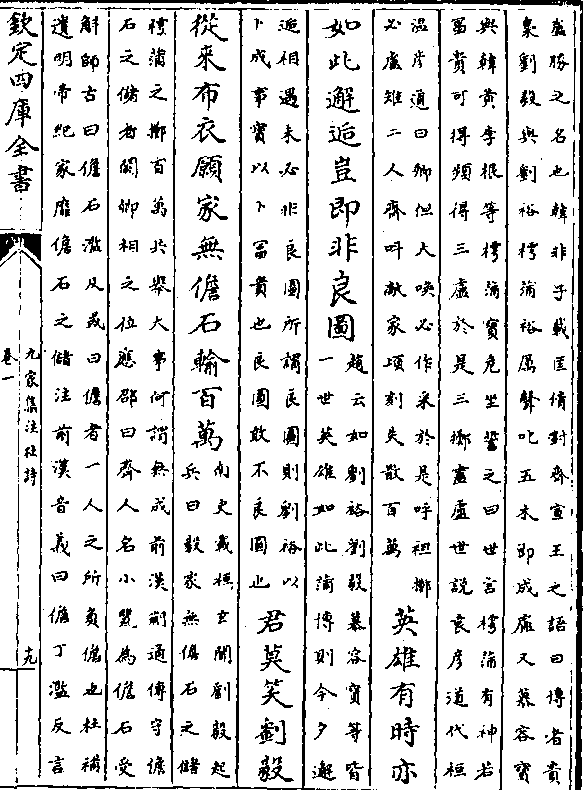 盛勝之名也韓非子載匡倩對齊宣王之語曰博者貴
梟劉毅與劉裕樗蒲裕厲聲叱五木即成盧又慕容寶
與韓黄李根等樗蒲寶危坐誓之曰世言樗蒲有神若
冨貴可得頻得三盧於是三擲盡盧世說袁彦道代桓
温岸道曰卿但大喚必作采於是呼袒擲
必盧雉二人齊呌敵家頃刻失散百萬
英雄有時亦
如此邂逅豈即非良圖
趙云如劉裕劉毅慕容寶等皆
一世英雄如此蒲博則今夕邂
逅相遇未必非良圖所謂良圖則劉裕以
卜成事寳以卜冨貴也良圖敢不良圖也
君莫笑劉毅
從来布衣願家無儋石輸百萬
南史載桓玄聞劉毅起
兵曰毅家無儋石之儲
樗蒲之擲百萬共舉大事何謂無成前漢蒯通傳守儋
石之儲者闕卿相之位應劭曰齊人名小甖為儋石受
觧師古曰儋石濫及或曰儋者一人之所負儋也杜補
遺明帝紀家靡儋石之儲注前漢音義曰儋丁濫反言
欽定四庫全書
九家集注杜詩
卷一
十九